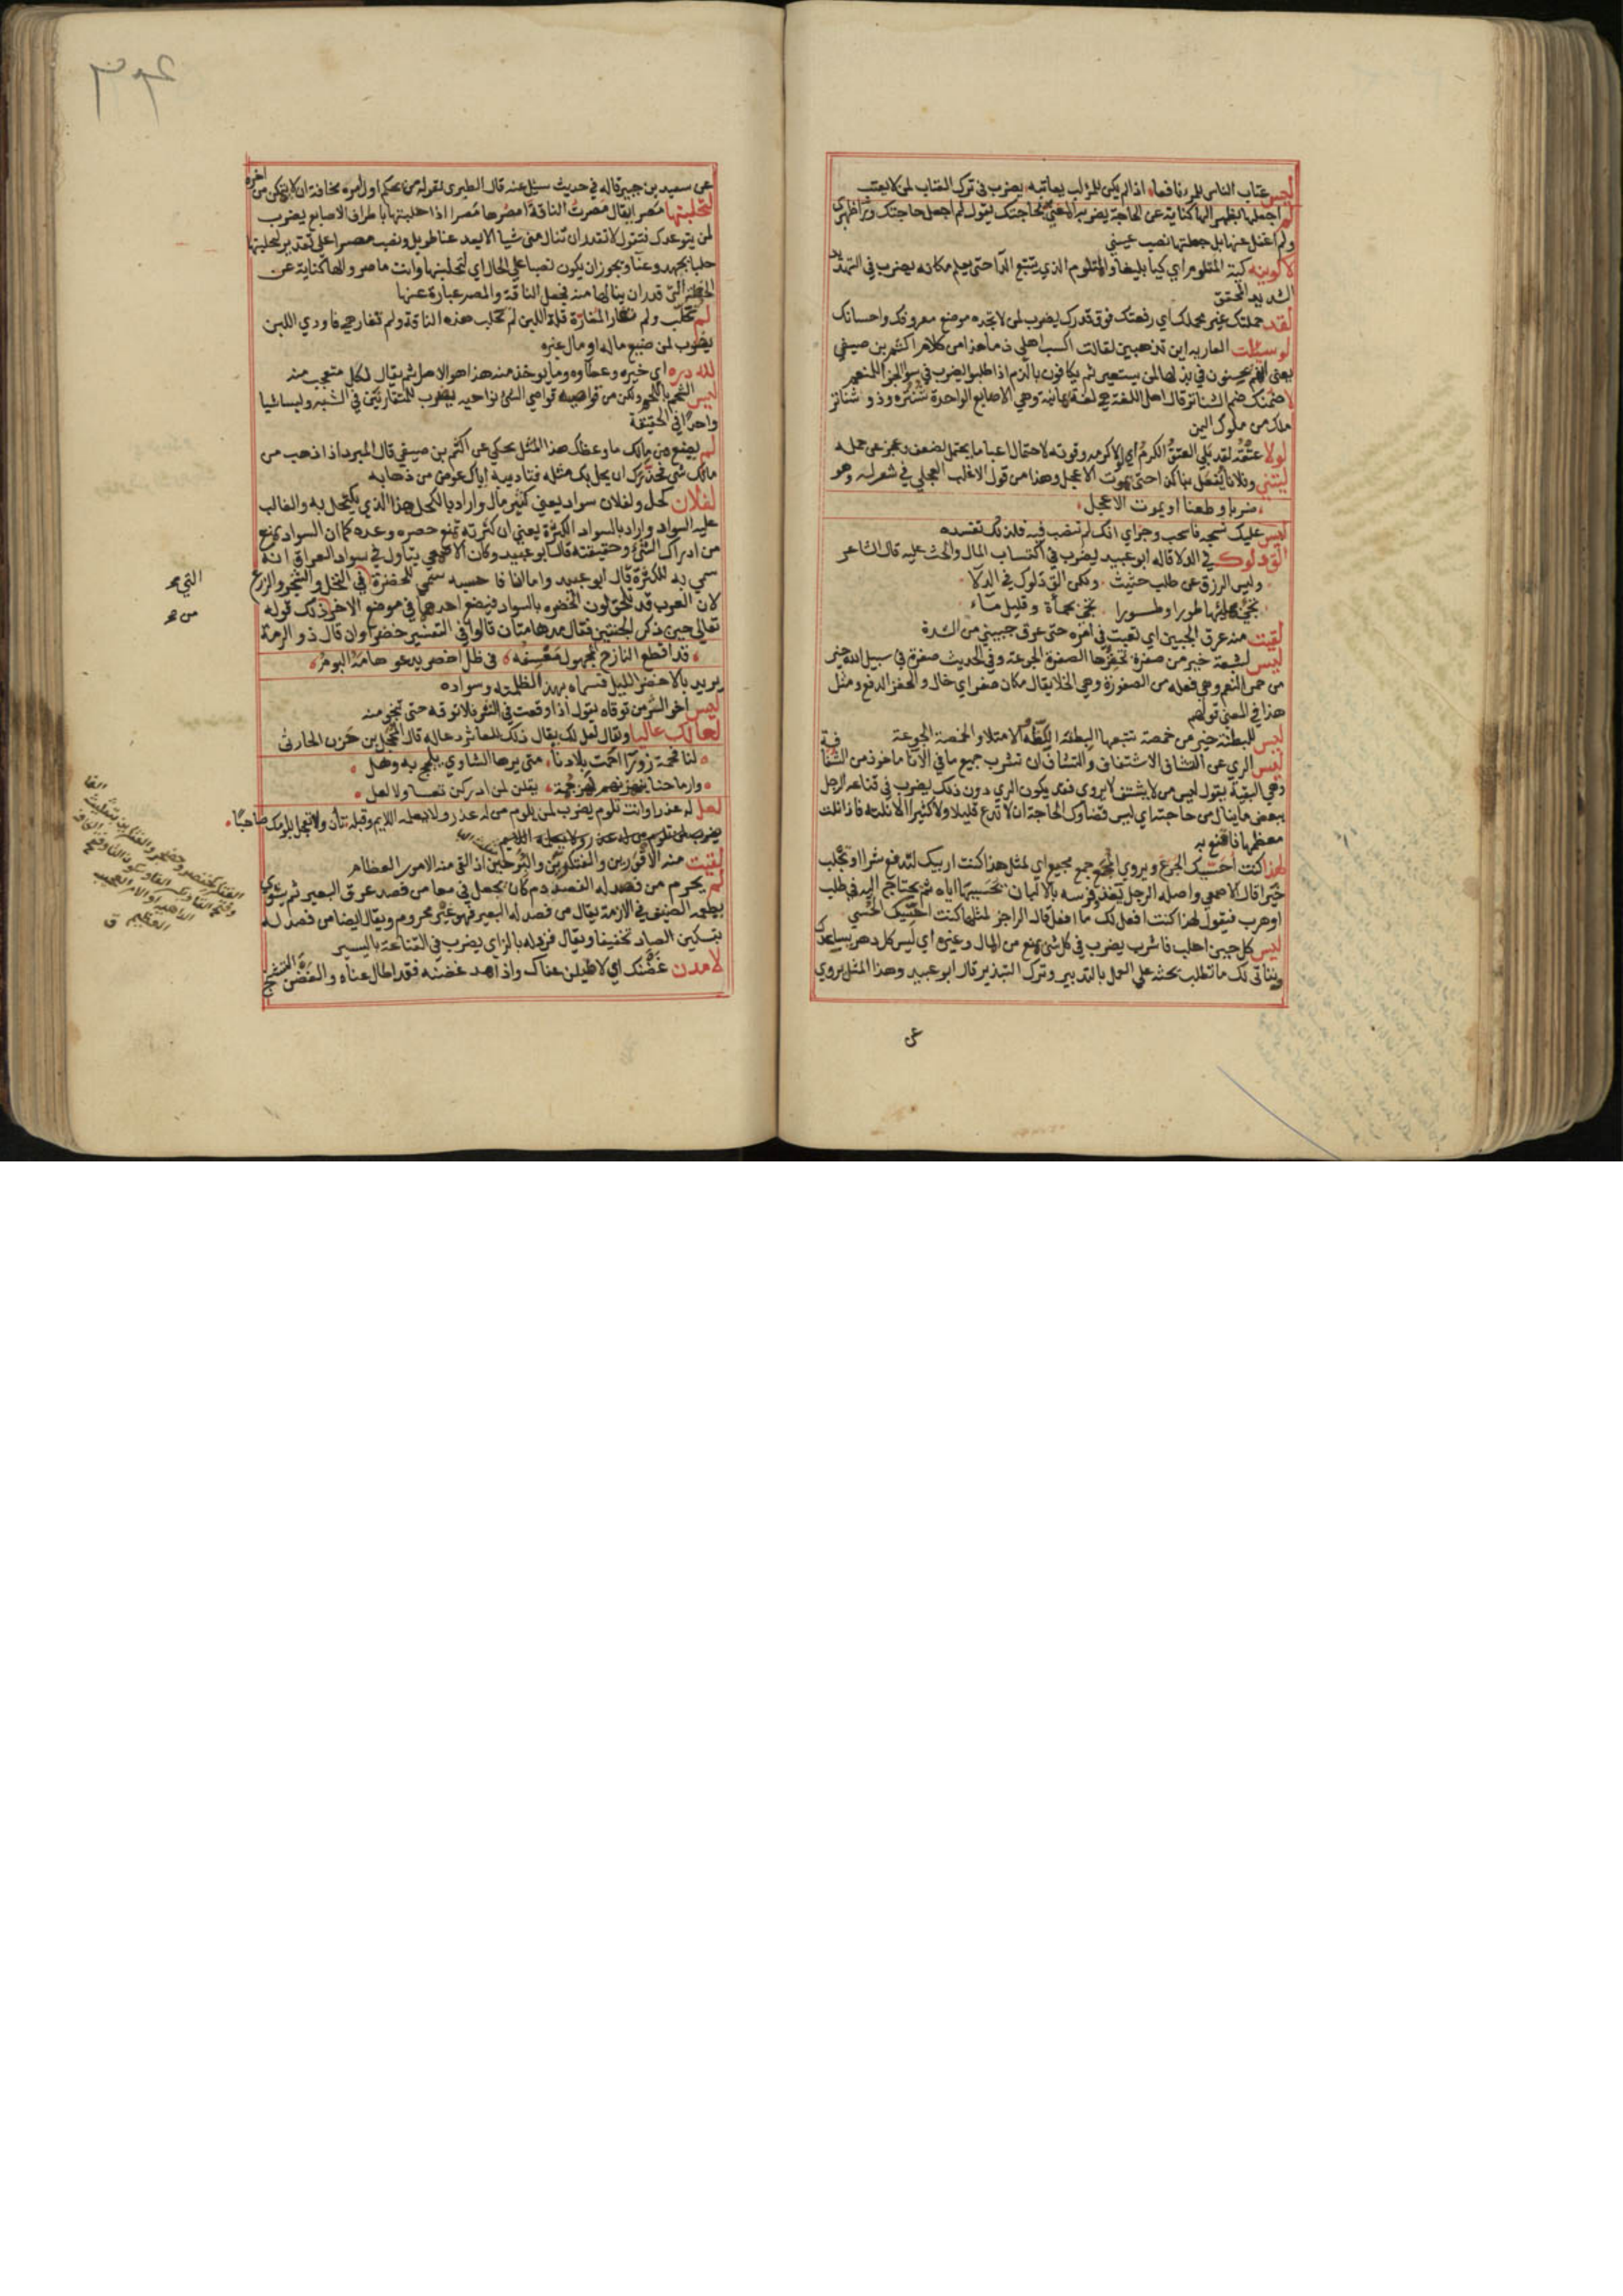 ليس عتاب الناس للمرء نافعا، اذا لم يكن للمرء لب يعاتبه، يضرب في ترك العتاب لمن لا يعتب
لم اجعلها بظهر الها كناية عن الحاجة يضربه المعني بحاجتك يقول لم اجعل حاجتك وراء ظهري
ولم اغفل عنها بل جعلتها نصب عيني
لاكوينه كية المتلوم اي كيا بليغا والمتلوم الذي يتتبع الداء حتى يعلم مكانه يضرب في التهديد
الشديد المحقق
لقد حملتك غير محملك اي رفعتك فوق قدرك يضرب لمن لا تجده موضع معروفك واحسانك
لو سئلت العارية اين تذهبين لقالت اكسب اهلي ذما هذا من كلام اكثم بن صيفي
يعني انهم يحسنون في بذلها لمن يستعير ثم يكافون بالذم اذا طلبوا يضرب في سوء الجزاء للمنعم
لاضمنك ضم الشناتر قال اهل اللغة هي لغة يمانية وهي الاصابع الواحدة شنترة وذو شناتر
ملك من ملوك اليمن
لولا عتقه لقد بلي العتق الكرم اي لولا كرمه وقوته لاحتمال اعبا ما يحتمل لضعف وعجز عن حمله
ليتني وفلانا يفعل بنا كذا حتى يموت الاعجل وهذا من قول الاغلب العجلي في شعر له وهو
ضربا وطعنا او يموت الاعجل
ليس عليك نسجه فاسحب وجر اي انك لم تنصب فيه فلذلك تفسده
الق دلوك في الدلاء قاله ابو عبيد يضرب في اكتساب المال والحث عليه قال الشاعر
وليس الرزق عن طلب حثيث، ولكن الق دلوك في الدلاء
تجئ بملئها طورا وطورا، تجئ بحمأة وقليل ماء
لقيت منه عرق الجبين اي تعبت في امره حتى عرق جبيني من الشدة
ليس لشبعة خير من صفرة تحفزها الصفرة الجوعة وفي الحديث صفرة في سبيل الله خير
من حمر النعم وهي فعلة من الصفورة وهي الخلا يقال مكان صفر اي خال والحفز الدفع ومثل
هذا في المعنى قولهم
ليس للبطنة خير من خمصة تتبعها البطنة الكظة الامتلا والخمصة الجوعة
ليس الري عن التشاف الاشتفاف والتشاف ان تشرب جميع ما في الانا ماخوذ من الشفافة
وهي البقية يقول ليس من لا يشتف لا يروى فقد يكون الري دون ذلك يضرب في قناعة الرجل
ببعض ما ينال من حاجته اي ليس قضاوك الحاجة ان لا تدع قليلا ولا كثيرا الا نلته فاذا نلت
معظمها فاقنع به
لهذا كنت احسيك الجرع ويروى المجع جمع مجيع اي لمثل هذا كنت اربيك لتدفع شرا او تجلب
خيرا قال الاصمعي واصله الرجل يغذو فرسه بالالبان يحسيها اياه ثم يحتاج اليه في طلب
او هرب فيقول لهذا كنت افعل لك ما افعل قال الراجز لمثلها كنت احسيك الحسي
ليس كل حين احلب فاشرب يضرب في كل شئ يمنع من المال وغيره اي ليس كل دهر يساعدك
ويتاتى لك ما تطلب يحثه على العمل بالتدبير وترك التبذير قال ابو عبيد وهذا المثل يروى
عن
عن سعيد بن جبير قاله في حديث سئل عنه قال الطبري يقوله من يحكم اول امره مخافة ان لا يتمكن من اخره
لتحلبنها مصرا يقال مصرت الناقة امصرها مصرا اذا حلبتها باطراف الاصابع يضرب
لمن يتوعدك فتقول لا تقدر ان تنال مني شيا الا بعد عنا طويل ونصب مصرا على تقدير لتحلبنها
حلبا بجهد وعنا ويجوز ان يكون نصبا على الحال اي لتحلبنها وانت ماصر والها كناية عن
الخطة التي قدر ان ينالها منه فجعل الناقة والمصر عبارة عنها
لم تحلب ولم تغار المغارة قلة اللبن لم تحلب هذه الناقة ولم تغار هي فاودى اللبن
يضرب لمن ضيع ماله او مال غيره
لله دره اي خيره وعطاؤه وما يوخذ منه هذا هو الاصل ثم يقال لكل متعجب منه
ليس الشحم باللحم ولكن من قواصيه قواصي الشئ نواحيه يضرب للمتقاربين في الشبه وليسا شيا
واحدا في الحقيقة
لم يضع من مالك ما وعظك هذا المثل يحكى عن اكثم بن صيفي قال المبرد اذا ذهب من
مالك شئ فحذرك ان يحل بك مثله فتاديبه اياك عوض من ذهابه
لفلان كحل ولفلان سواد يعني كثير مال واراد بالكحل هذا الذي يكتحل به والغالب
عليه السواد واراد بالسواد الكثرة يعني ان كثرته تمنع حصره وعده كما ان السواد يمنع
من ادراك الشئ وحقيقته قال ابو عبيد وكان الاصمعي يتاول في سواد العراق انه
سمي به للكثرة قال ابو عبيد واما انا فاحسبه سمي للخضرة في النخل والشجر والزرع
لان العرب قد تلحق لون الخضرة بالسواد فيضع احدهما في موضع الاخر ذلك قوله
تعالى حين ذكر الجنتين فقال مدهامتان قالوا في التفسير خضراوان قال ذو الرمة
قد اقطع النازح المجهول معسفه، في ظل اخضر يدعو هامه البوم
يريد بالاخضر الليل فسماه بهذا لظلمته وسواده
ليس اخو الشر من توقاه يقول اذا وقعت في الشر فلا توقه حتى تنجو منه
لعا لك عاليا ويقال لعل لك يقال ذلك للعاثر دعاء له قال المخبل بن حزن الحارثي
لنا فخمة زورا احمت بلادنا، متى يرها الشاوي يلجج به وهل
وارماحنا ينهزنهم نهز جمة، يقلن لمن ادركن تعسا ولا لعل
لعل له عذرا وانت تلوم يضرب لمن يلوم من له عذر ولا يعلمه اللايم وقبله تأن ولا تعجل بلومك صاحبا
لقيت منه الاقورين والفتكرين والبرحين اذا لقي منه الامور العظام
لم يحرم من فصد له الفصد دم كان يجعل في معا من فصد عرق البعير ثم يشوى
يطعمه الضيف في الازمة يقال من فصد له البعير فهو غير محروم ويقال ايضا من فصد له
بتسكين الصاد تخفيفا ويقال فزد له بالزاي يضرب في القناعة باليسير
لامدن غضنك اي لاطيلن عناك واذا مد غضنه فقد اطال عناه والغضن التشنج
التي صح
من صح